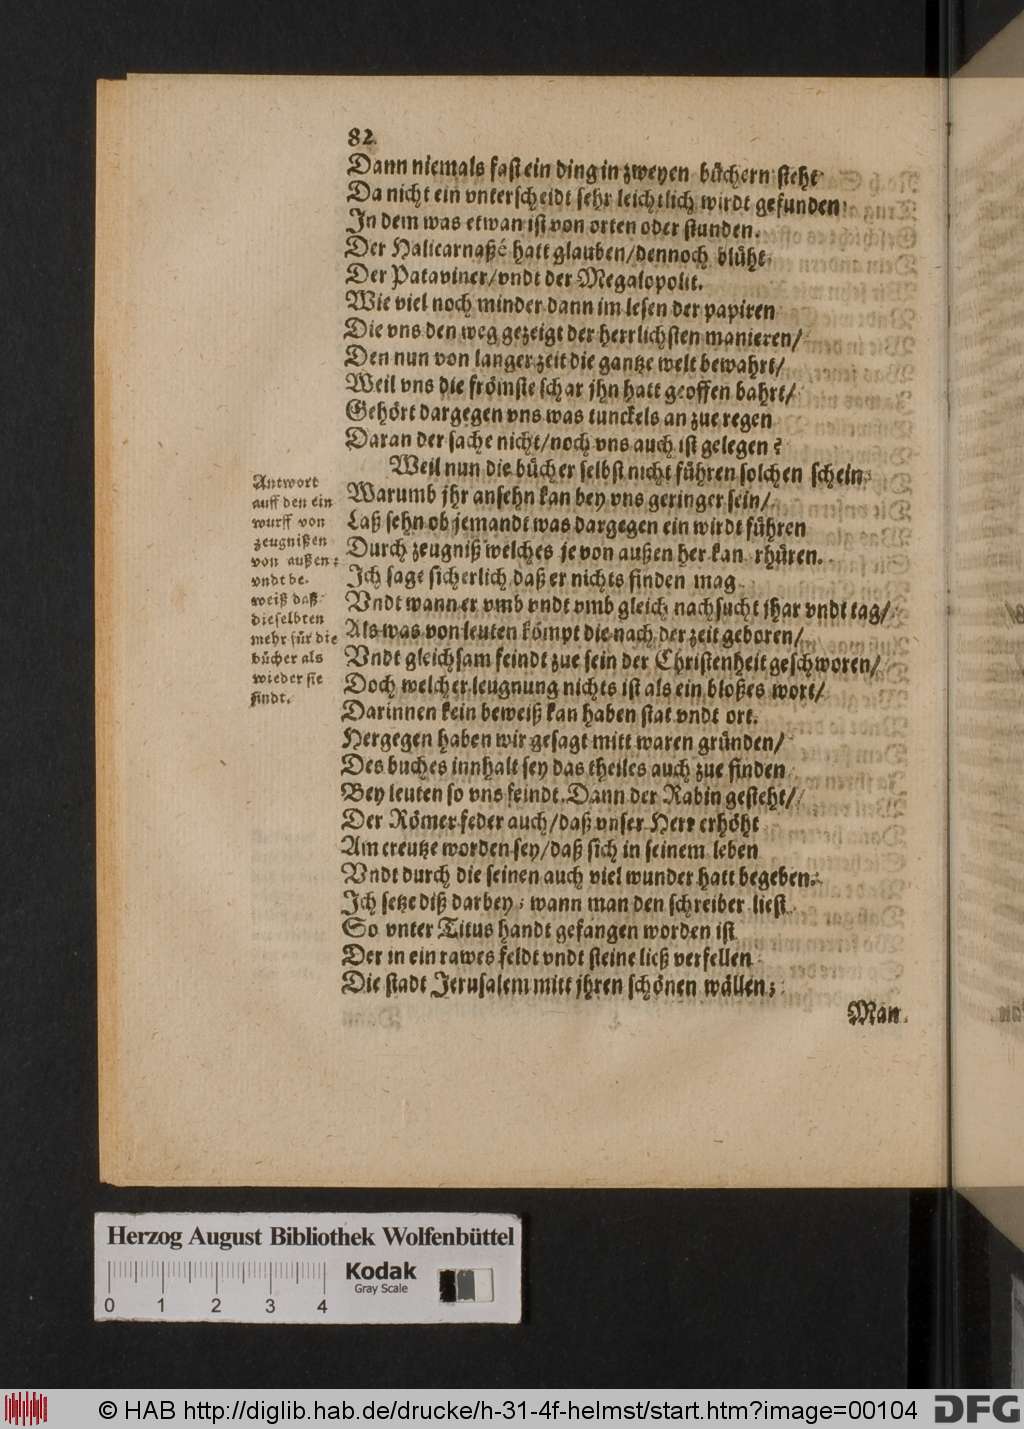 82.
Dann niemals fast ein ding in zweyen büchern steht
Da nicht ein vnterscheidt sehr leichtlich wirdt gefunden
In dem was etwan ist von orten oder stunden.
Der Halicarnaßé hatt glauben/dennoch blüht
Der Pataviner/vndt der Megalopolit.
Wie viel noch minder dann im lesen der papiren
Die vns den weg gezeigt der herrlichsten manieren/
Den nun von langer zeit die gantze welt bewahrt/
Weil vns die frömste schar jhn hatt geoffen bahrt/
Gehört dargegen vns was tunckels an zue regen
Daran der sache nicht/noch vns auch ist gelegen?
Weil nun die bücher selbst nicht führen solchen schein
Warumb jhr ansehn kan bey vns geringer sein/
Laß sehn ob jemandt was dargegen ein wirdt führen
Durch zeugniß welches je von außen her kan rhüren.
Ich sage sicherlich daß er nichts finden mag
Vndt wann er vmb vndt vmb gleich nachsucht jhar vndt tag/
Als was von leuten kömpt die nach der zeit geboren/
Vndt gleichsam feindt zue sein der Christenheit geschworen/
Doch welcher leugnung nichts ist als ein bloßes wort/
Darinnen kein beweiß kan haben stat vndt ort.
Hergegen haben wir gesagt mitt waren gründen/
Des buches innhalt sey das theiles auch zue finden
Bey leuten so vns feindt. Dann der Rabin gesteht/
Der Römer feder auch/daß vnser Herr erhöht
Am creutze worden sey/daß sich in seinem leben
Vndt durch die seinen auch viel wunder hatt begeben.
Ich setze diß darbey; wann man den schreiber liest
So vnter Titus handt gefangen worden ist
Der in ein rawes feldt vndt steine ließ verfellen
Die stadt Jerusalem mitt jhren schönen wällen;
Man
Antwort
auff den ein
wurff von
zeugnißen
von außen:
vndt be-
weiß daß
dieselbten
mehr für die
bücher als
wieder sie
sindt.
Herzog August Bibliothek Wolfenbüttel
0 1 2 3 4
Kodak
Gray Scale
© HAB http://diglib.hab.de/drucke/h-31-4f-helmst/start.htm?image=00104
DFG